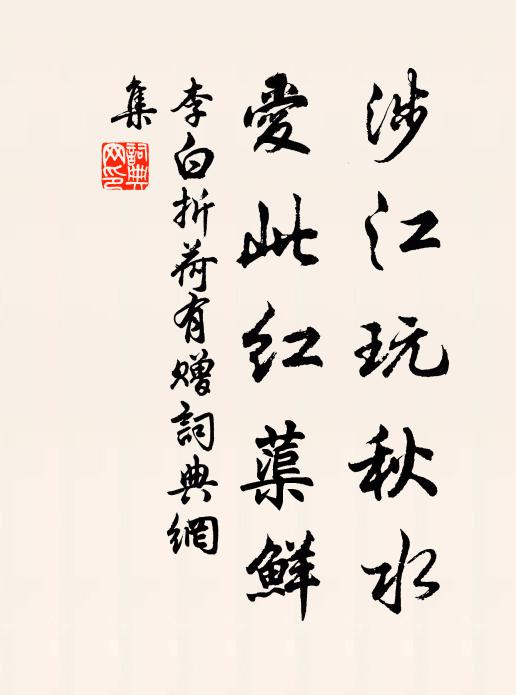 涉江玩秋水
愛此紅蕖鮮
李白折荷有贈詞典網
集
詞典
网印